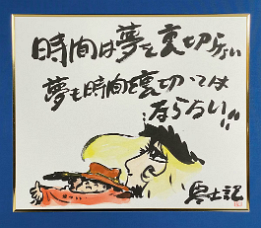 時間は夢を裏切らない
夢も時間を裏切っては
ならない!!